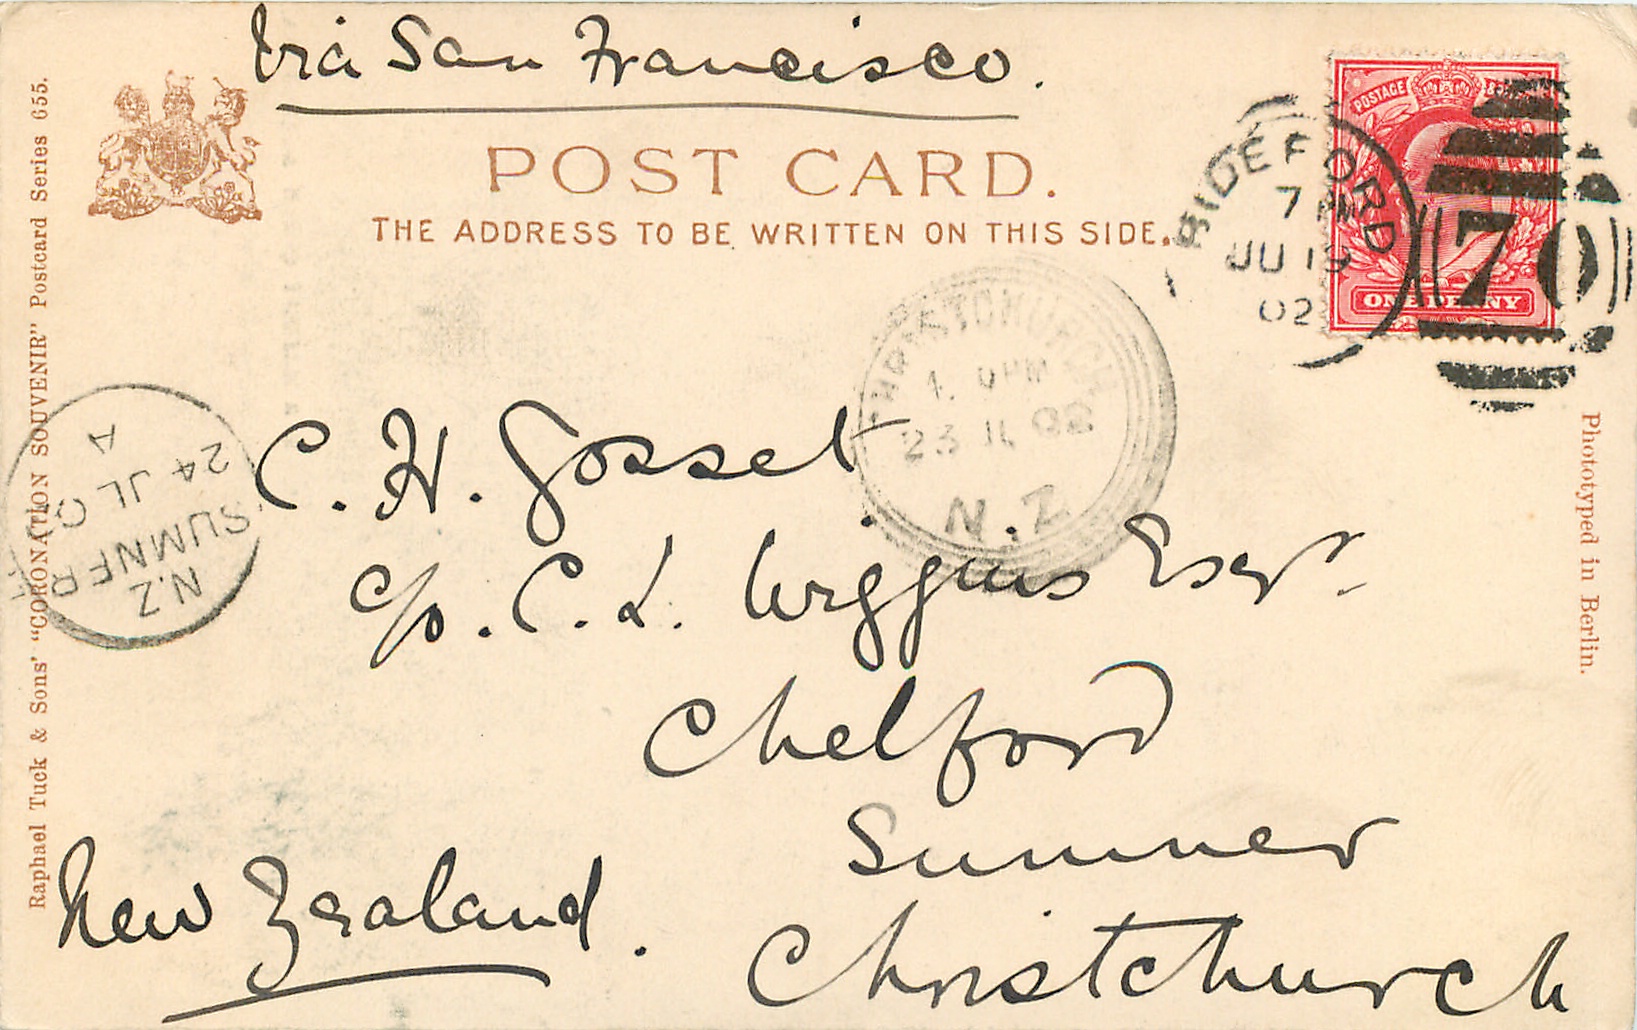 Via San Francisco.
POST CARD.
THE ADDRESS TO BE WRITTEN ON THIS SIDE.
POSTAGE
ONE PENNY
BIDEFORD
7 PM
JU 19
02
70
CHRISTCHURCH
1. 0 PM
23 JL 02
N.Z
A
24 JL 02
SUMNER
N.Z
C. H. Gosset
c/o. C. L. Wiggins Esqr.
Chelford
Sumner
Christchurch
New Zealand.
Raphael Tuck & Sons' "CORONATION SOUVENIR" Postcard Series 655.
Phototyped in Berlin.